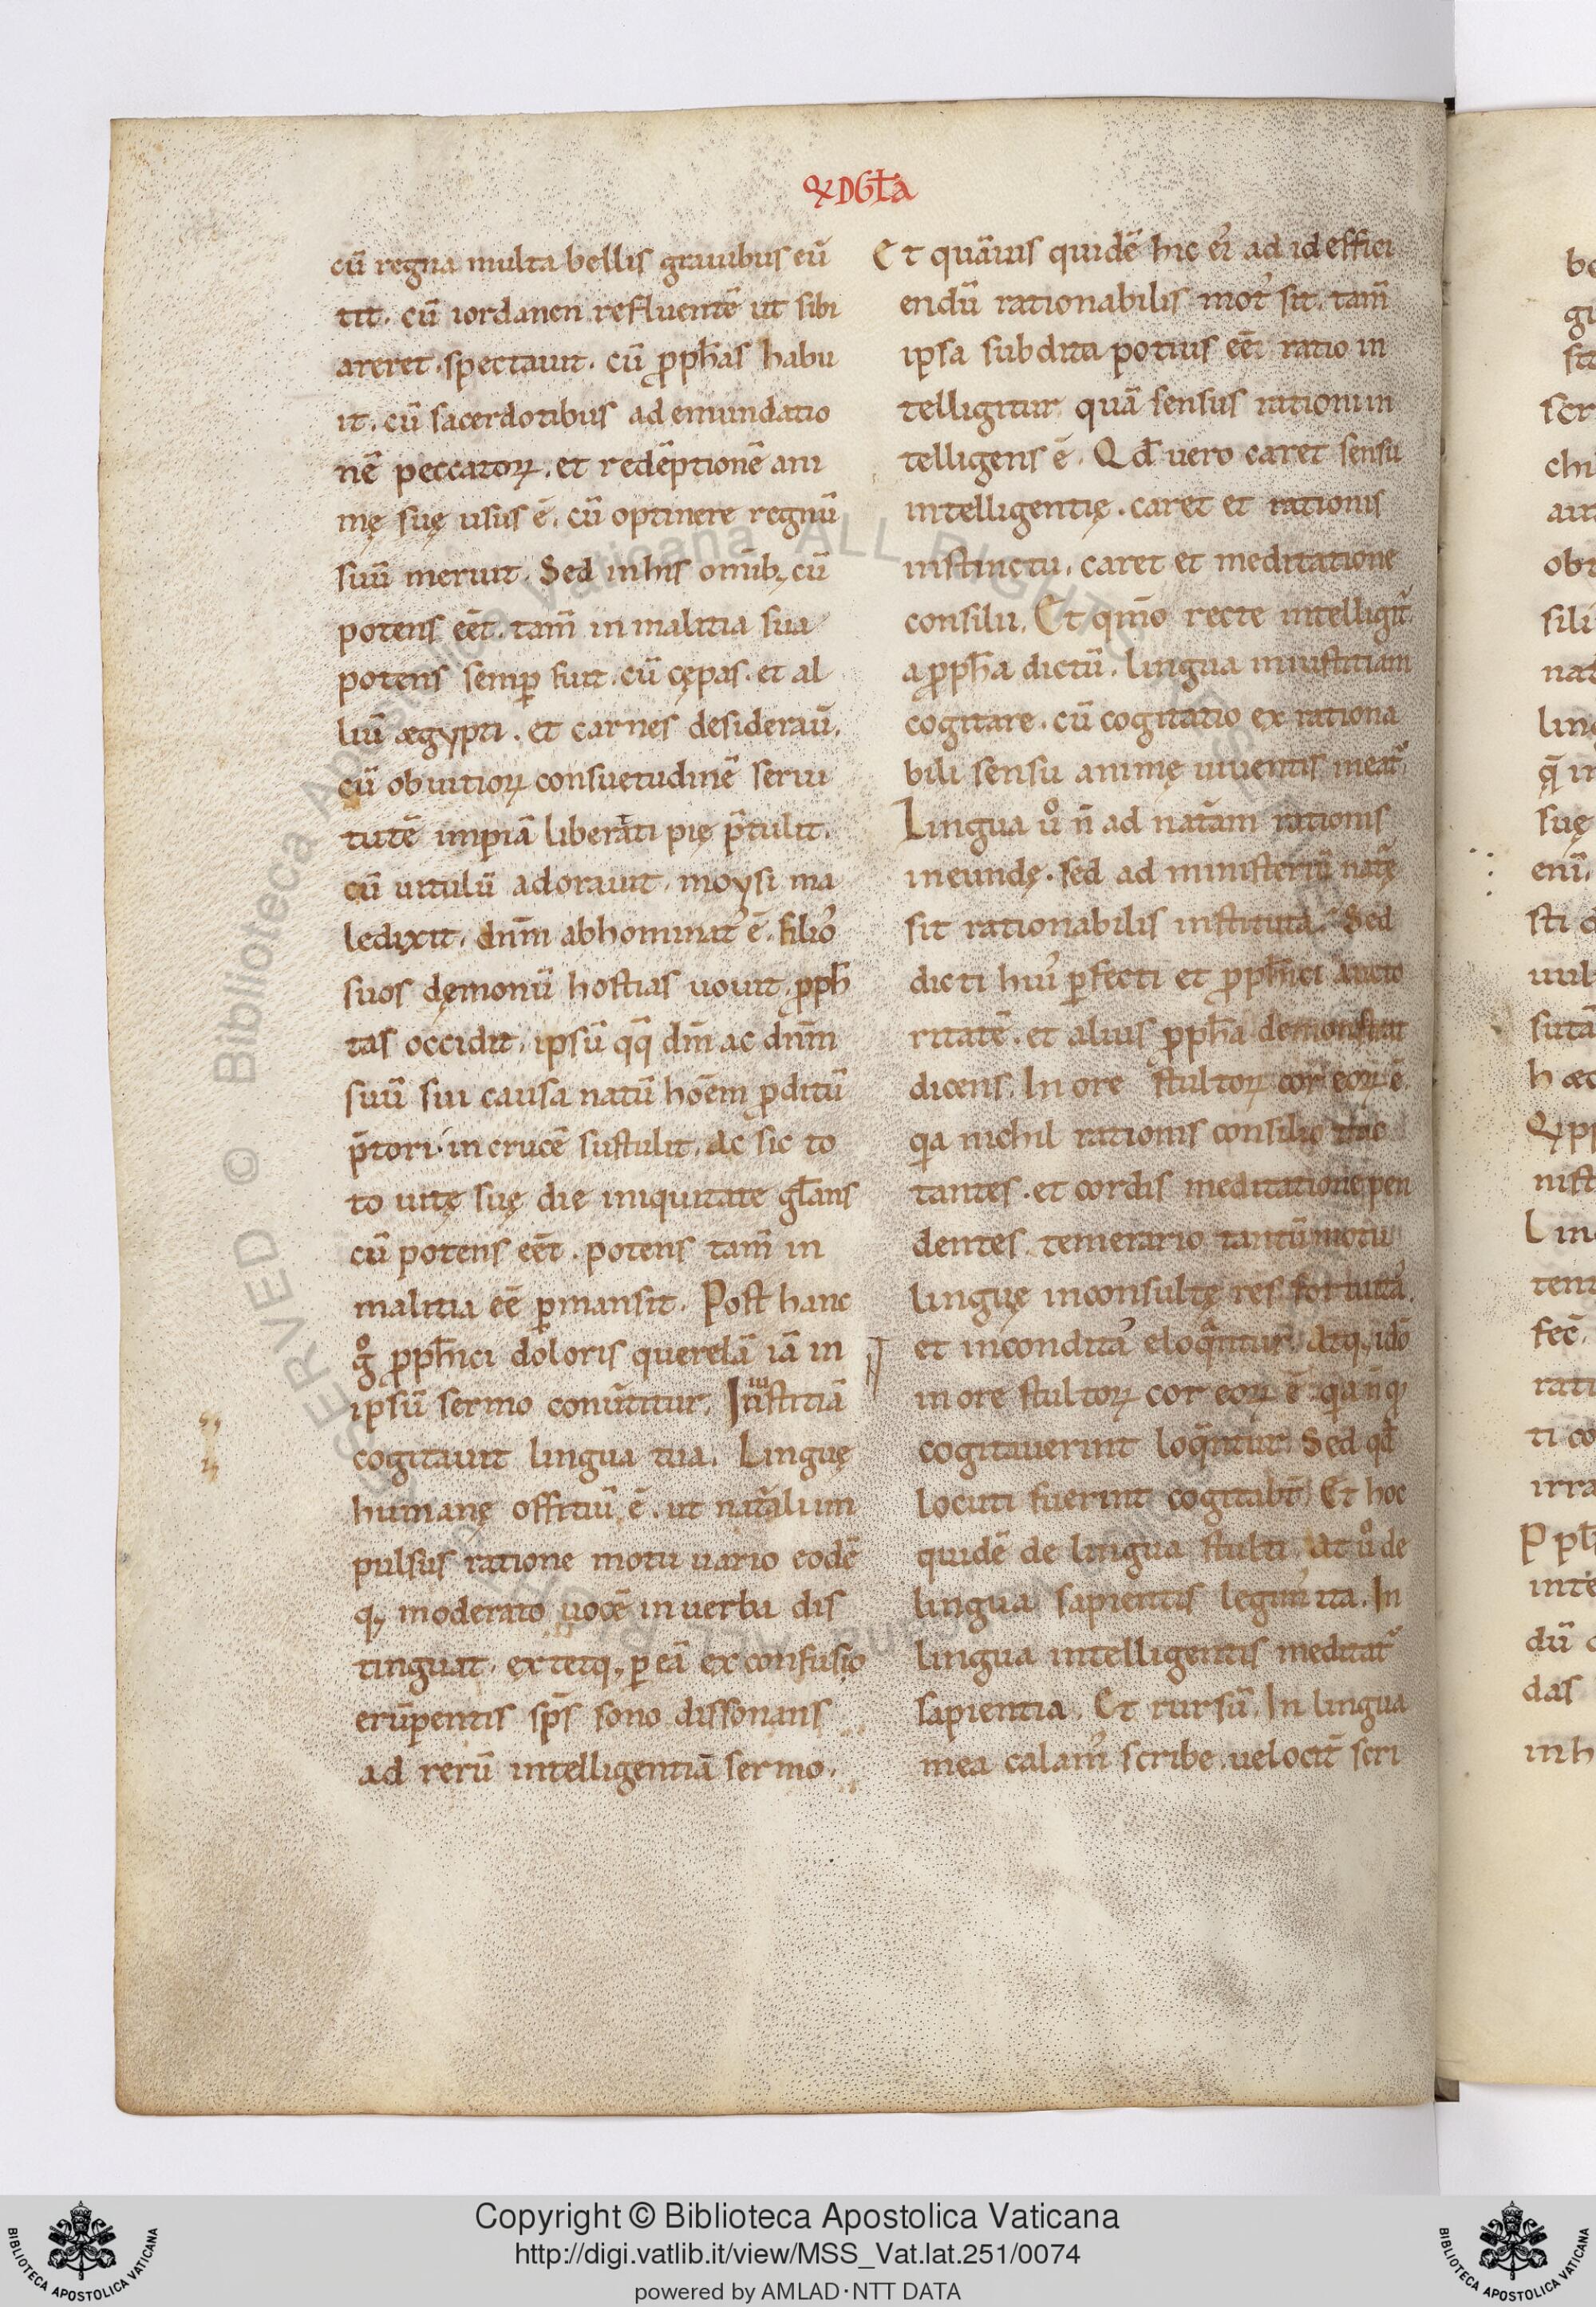 QVDGŁa
cū regna multa bellis grauibus eū
tit. cū iordanen refluentē ut sibi
areret. spectauit. cū ꝓph̄as habu
it. cū sacerdotibus ad emundatio
nē peccatoꝝ. et redēptionē ani
mę suę usus ē. cū optinere regnū
suū meruit. Sed in his omībꝫ cū
potens eēt. tam̄ in malitia sua
potens semꝑ fuit. cū cępas. et al
liū ægypti. et carnes desiderau̅.
cū ob uitioꝝ consuetudinē serui
tutē impiā liberati pię p̄tulit.
cū uitulū adorauit. moysi ma
ledixit. dnm̄ abhominatꝰ ē. filioꝰ
suos dęmonū hostias uouit. ꝓph̄
tas occidit. ipsū qq̄ dm̄ ac dnm̄
suū sui causa natū hoēm ꝓditū
p̄tori. in crucē sustulit. Ac sic to
to uitę suę die iniquitate gl̄ans
cū potens eēt. potens tam̄ in
malitia eē ꝑmansit. Post hanc
gͦ ꝓph̄ici doloris querelā iā in
ipsū sermo conūtitur. Iniustitiā
cogitauit lingua tua. Linguę
humanę offitiū ē. ut nat̄ali im
pulsus ratione motu uario eodē
qꝫ moderato uocē in uerba dis
tinguat. extetqꝫ ꝑ eā ex confusio
erūpentis sp̄s sono dissonans
ad rerū intelligentiā sermo.
Et quāuis quidē hic eiꝰ ad id effici
endū rationabilis motꝰ sit. tam̄
ipsa subdita potius eē ratio in
telligitur quā sensus rationi in
telligens ē. Qd̄ uero caret sensu
intelligentię. caret et rationis
instinctu. caret et meditatione
consilii. Et qm̄o recte intelligit̄
a ꝓph̄a dictū. lingua iniustitiam
cogitare. cū cogitatio ex rationa
bili sensu animę uiuentis meat᷑
Lingua uͦ n̄ ad nat̄am rationis
ineundę. sed ad ministeriū nat̄ę
sit rationabilis instituta. Sed
dicti huiꝰ ꝑfecti et ꝓph̄ici aucto
ritatē. et alius ꝓph̄a demonstrat
dicens. In ore stultoꝝ cor eoꝝ ē.
qa nichil rationis consilio trac
tantes. et cordis meditatione pen
dentes. temerario tantū motu
linguę inconsultę res fortuitaꝰ.
et inconditaꝰ eloq̄ntur. Atqꝫ idō
in ore stultoꝝ cor eoꝝ ē. qa n̄ qꝫ
cogitauerint loq̄ntur. Sed qd̄
locuti fuerint cogitabt̄. Et hoc
quidē de lingua stulti. At uͦ de
lingua sapientis legimꝰ ita. In
lingua intelligentis meditat᷑
sapientia. Et rursū. In lingua
mea calamꝰ scribe. uelocit̄ scri
Copyright © Biblioteca Apostolica Vaticana
http://digi.vatlib.it/view/MSS_Vat.lat.251/0074
powered by AMLAD·NTT DATA